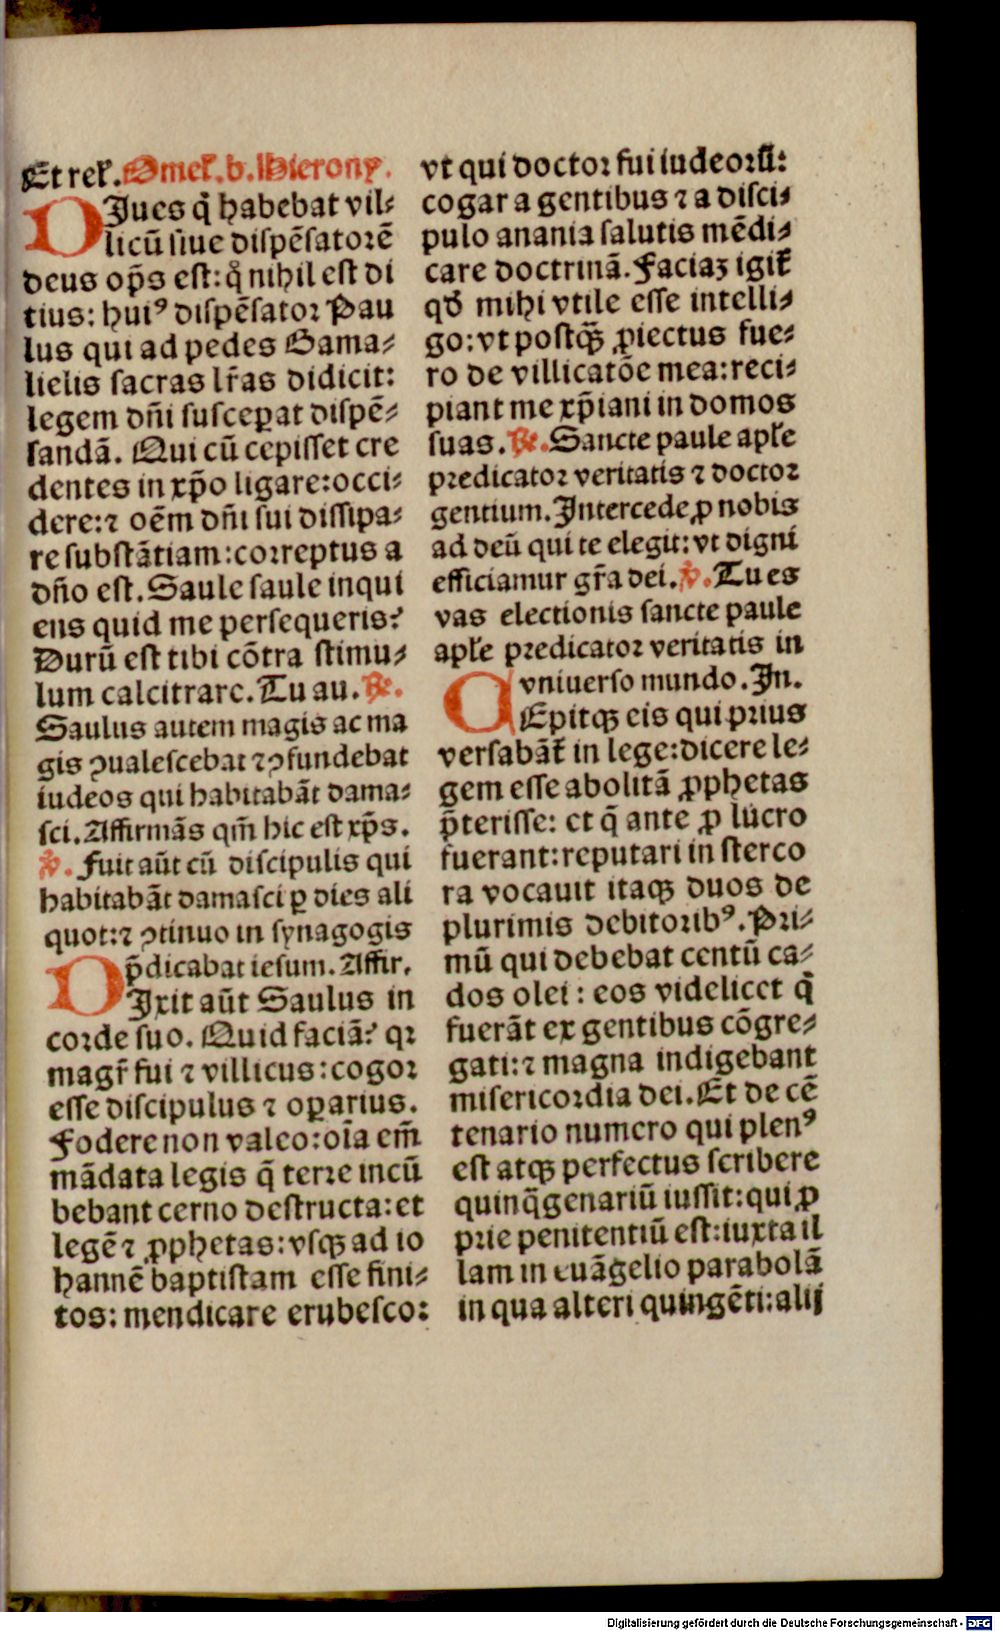 Et reꝉ. Omeꝉ. b. Hierony.
DIues q̇ habebat vil⸗
licū siue dispēsatorē
deus op̄s est: q̊ nihil est di
tius: huiꝰ dispēsator Pau
lus qui ad pedes Gama⸗
lielis sacras lr̄as didicit:
legem dn̄i susceꝑat dispē⸗
sandā. Qui cū cepisset cre
dentes in xp̄o ligare: occi⸗
dere: ⁊ oēm dn̄i sui dissipa⸗
re substātiam: correptus a
dn̄o est. Saule saule inqui
ens quid me persequeris?
Durū est tibi cōtra stimu⸗
lum calcitrare. Tu au. ℟.
Saulus autem magis ac ma
gis ꝯualescebat ⁊ ꝯfundebat
iudeos qui habitabāt dama⸗
sci. Affirmās qm̄ hic est xp̄s.
℣. Fuit aūt cū discipulis qui
habitabāt damasci ꝑ dies ali
quot: ⁊ ꝯtinuo in synagogis
p̄dicabat iesum. Affir.
DIxit aūt Saulus in
corde suo. Quid faciā? qꝛ
magr̄ fui ⁊ villicus: cogor
esse discipulus ⁊ oꝑarius.
Fodere non valeo: oīa em̄
mādata legis q̄ terre incū
bebant cerno destructa: et
legē ⁊ ꝓphetas: vsqꝫ ad io
hannē baptistam esse fini⸗
tos: mendicare erubesco:
vt qui doctor fui iudeorū:
cogar a gentibus ⁊ a disci⸗
pulo anania salutis mēdi⸗
care doctrinā. Faciaꝫ igit᷑
qđ mihi vtile esse intelli⸗
go: vt postqꝫ̄ ꝓiectus fue⸗
ro de villicatōe mea: reci⸗
piant me xp̄iani in domos
suas. ℟. Sancte paule apꝉe
predicator veritatis ⁊ doctor
gentium. Intercede ꝓ nobis
ad deū qui te elegit: vt digni
efficiamur gr̄a dei. ℣. Tu es
vas electionis sancte paule
apꝉe predicator veritatis in
vniuerso mundo. In.
CEpitqꝫ eis qui prius
versabāt᷑ in lege: dicere le⸗
gem esse abolitā ꝓphetas
p̄terisse: et q̄ ante ꝓ lucro
fuerant: reputari in sterco
ra vocauit itaqꝫ duos de
plurimis debitoribꝰ. Pri⸗
mū qui debebat centū ca⸗
dos olei: eos videlicet q̇
fuerāt ex gentibus cōgre⸗
gati: ⁊ magna indigebant
misericordia dei. Et de cē
tenario numero qui plenꝰ
est atqꝫ perfectus scribere
quinq̄genariū iussit: qui ꝓ
prie penitentiū est: iuxta il
lam in euāgelio parabolā
in qua alteri quingēti: alij
Digitalisierung gefördert durch die Deutsche Forschungsgemeinschaft - DFG